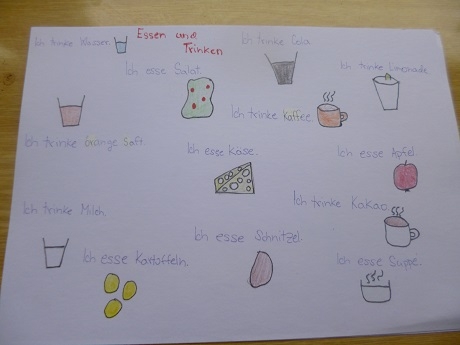 Essen und
Trinken
Ich trinke Wasser.
Ich trinke Cola.
Ich esse Salat.
Ich trinke Limonade
Ich trinke Kaffee.
Ich trinke orange Saft.
Ich esse Käse.
Ich esse Apfel.
Ich trinke Milch.
Ich trinke Kakao.
Ich esse Schnitzel.
Ich esse Kartoffeln.
Ich esse Suppe.